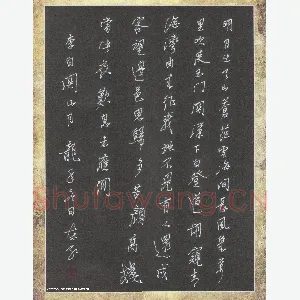 明月出天山蒼茫雲海間長風幾萬
里吹度玉門關漢下白登道胡窺青
海灣由來征戰地不見有人還戍
客望邊邑思歸多苦顏高樓
當此夜歎息未應閑
李白關山月
shufawang.CN